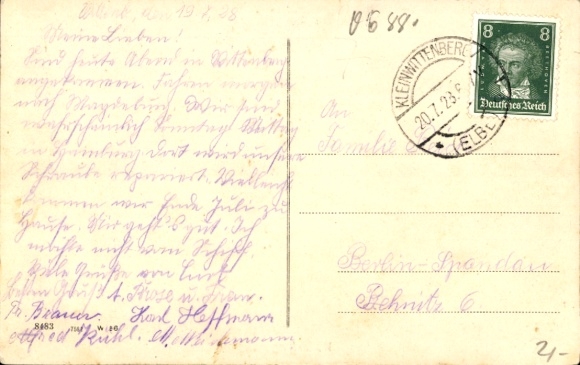 den 19.7.28
Meine Lieben!
Sind heute Abend in Wittenberg
angekommen. Fahren morgen
nach Magdeburg. Wir sind
wahrscheinlich Sonntag Mittag
in Hamburg dort wird unsere
Schraube repariert. Vielleicht
kommen wir Ende Juli zu
Hause. Mir geht's gut. Ich
möchte nicht vom Schiff.
Viele Grüße von
besten Gruß A. u. Frau.
Fr. Braun. Karl Hoffmann
Alfred Kühl.
8483 W
88.
8 8
Deutsches Reich
KLEINWITTENBERG
20.7.28
(ELBE)
An
Familie
Berlin-Spandau
Pichnitz 6
2,-